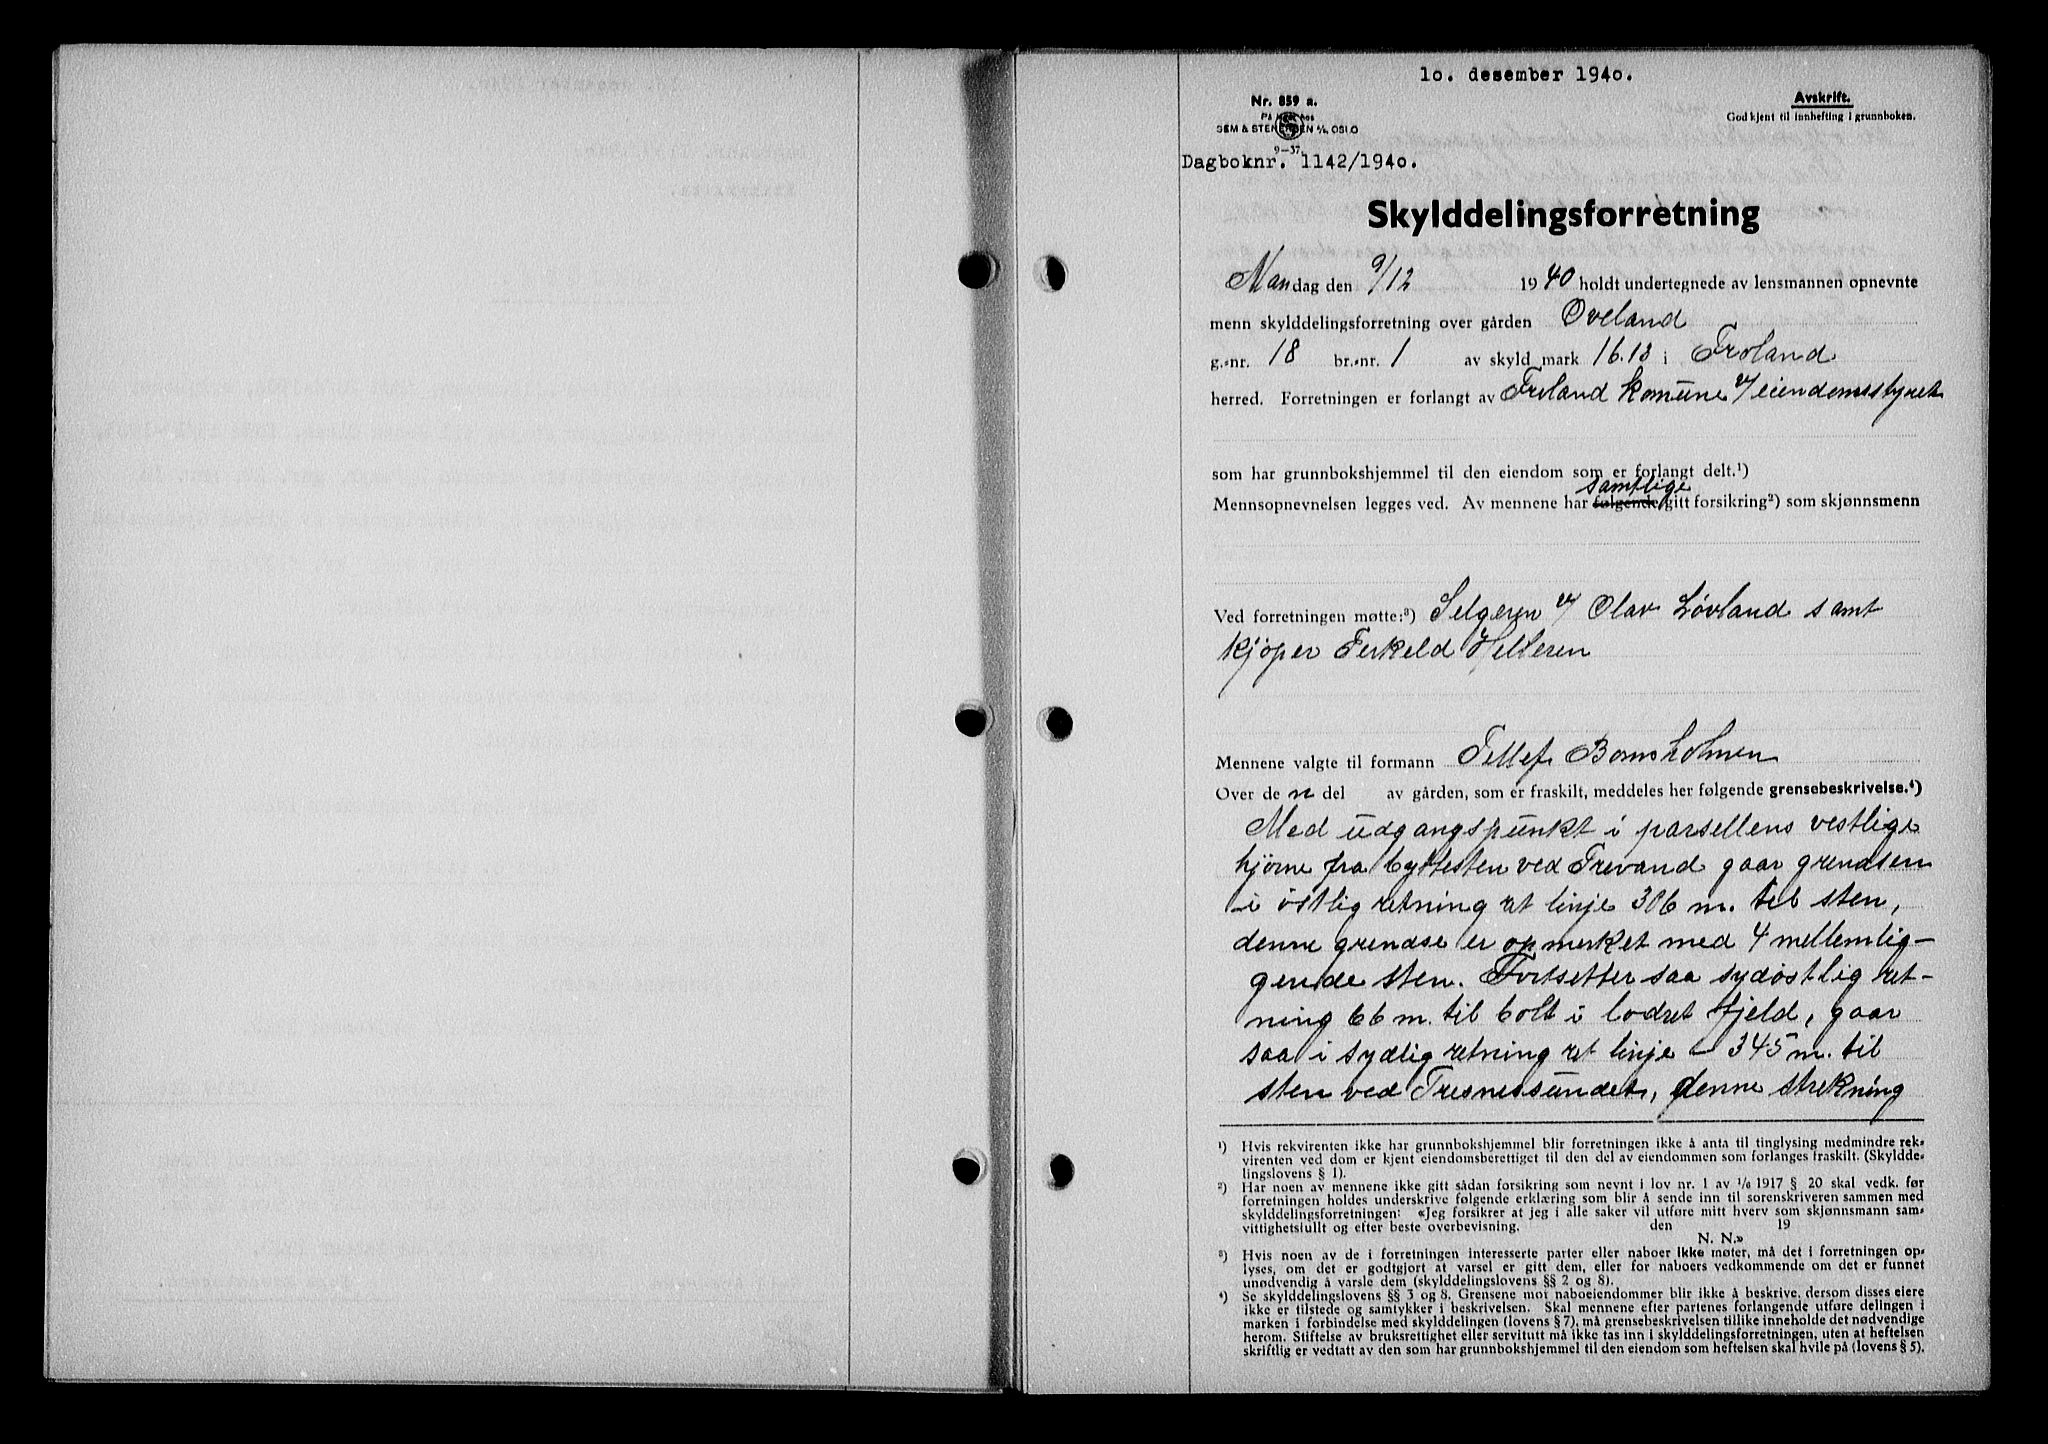 10. desember 1940.
Nr. 859 a.
Avskrift.
På lager hos
SEM & STENERSEN A/S, OSLO
Godkjent til innhefting i grunnboken.
9-37
Dagboknr. 1142/1940.
Skylddelingsforretning
Mandag den 9/12 1940 holdt undertegnede av lensmannen opnevnte
menn skylddelingsforretning over gården Oveland
g.-nr. 18 br.-nr. 1 av skyld mark 16.13 i Froland
herred. Forretningen er forlangt av Froland komune v/ eiendomsstyret
som har grunnbokshjemmel til den eiendom som er forlangt delt.¹)
samtlige
Mennsopnevnelsen legges ved. Av mennene har følgende gitt forsikring²) som skjønnsmenn
Ved forretningen møtte:³) Selgeren v/ Olav Løvland samt
kjøper Terkeld Helleren
Mennene valgte til formann Tellef Bomsholmen
Over den del av gården, som er fraskilt, meddeles her følgende grensebeskrivelse.⁴)
Med udgangspunkt i parsellens vestlige
hjørne fra byttesten ved Trevand gaar grendsen
i østlig retning ret linje 306 m. til sten,
denne grendse er opmerket med 4 mellemlig-
gende sten. Fortsetter saa sydøstlig ret-
ning 66 m. til bolt i lodret fjeld, gaar
saa i sydlig retning ret linje - 345 m. til
sten ved Tresnessundet, denne strekning
¹) Hvis rekvirenten ikke har grunnbokshjemmel blir forretningen ikke å anta til tinglysing medmindre rek-
virenten ved dom er kjent eiendomsberettiget til den del av eiendommen som forlanges fraskilt. (Skyldde-
lingslovens § 1).
²) Har noen av mennene ikke gitt sådan forsikring som nevnt i lov nr. 1 av 1/6 1917 § 20 skal vedk. før
forretningen holdes underskrive følgende erklæring som blir å sende inn til sorenskriveren sammen med
skylddelingsforretningen: «Jeg forsikrer at jeg i alle saker vil utføre mitt hverv som skjønnsmann sam-
vittighetsfullt og efter beste overbevisning. den 19
N. N.»
³) Hvis noen av de i forretningen interesserte parter eller naboer ikke møter, må det i forretningen op-
lyses, om det er godtgjort at varsel er gitt dem, eller for naboers vedkommende om det er funnet
unødvendig å varsle dem (skylddelingslovens §§ 2 og 8).
⁴) Se skylddelingslovens §§ 3 og 8. Grensene mot naboeiendommer blir ikke å beskrive, dersom disses eiere
ikke er tilstede og samtykker i beskrivelsen. Skal mennene efter partenes forlangende utføre delingen i
marken i forbindelse med skylddelingen (lovens § 7), må grensebeskrivelsen tillike inneholde det nødvendige
herom. Stiftelse av bruksrettighet eller servitutt må ikke tas inn i skylddelingsforretningen, uten at heftelsen
skriftlig er vedtatt av den som har grunnbokshjemmel til den eiendom som heftelsen skal hvile på (lovens § 5).